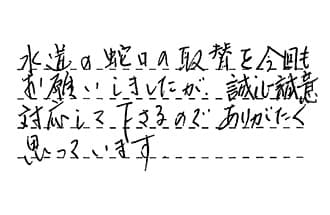 水道の蛇口の取替を今回も
お願いしましたが 誠心誠意
対応して下さるので ありがたく
思っています